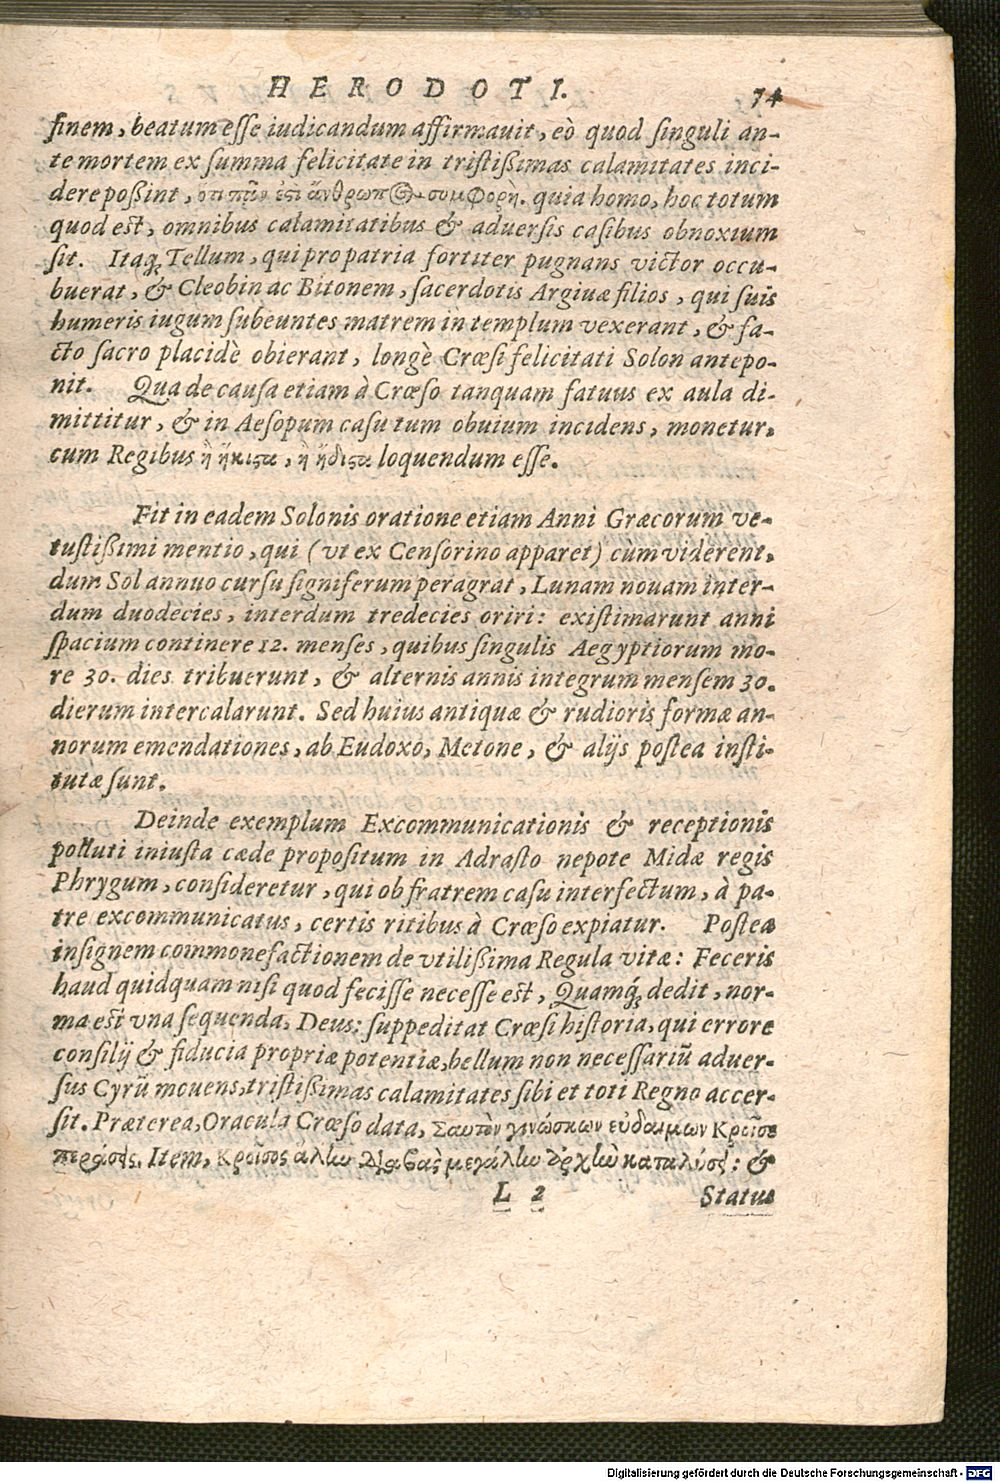 HERODOTI. 74
finem, beatum esse iudicandum affirmauit, eò quod singuli an-
te mortem ex summa felicitate in tristißimas calamitates inci-
dere poßint, ὅτι πᾶν ἐστι ἄνθρωπος συμφορὴ. quia homo, hoc totum
quod est, omnibus calamitatibus & aduersis casibus obnoxium
sit. Itaq; Tellum, qui pro patria fortiter pugnans victor occu-
buerat, & Cleobin ac Bitonem, sacerdotis Argiuæ filios, qui suis
humeris iugum subeuntes matrem in templum vexerant, & fa-
cto sacro placidè obierant, longè Crœsi felicitati Solon antepo-
nit. Qua de causa etiam à Crœso tanquam fatuus ex aula di-
mittitur, & in Aesopum casu tum obuium incidens, monetur,
cum Regibus ἢ ἥκιστα, ἢ ἥδιστα loquendum esse.
Fit in eadem Solonis oratione etiam Anni Græcorum ve-
tustißimi mentio, qui (vt ex Censorino apparet) cùm viderent,
dum Sol annuo cursu signiferum peragrat, Lunam nouam inter-
dum duodecies, interdum tredecies oriri: existimarunt anni
spacium continere 12. menses, quibus singulis Aegyptiorum mo-
re 30. dies tribuerunt, & alternis annis integrum mensem 30.
dierum intercalarunt. Sed huius antiquæ & rudioris formæ an-
norum emendationes, ab Eudoxo, Metone, & alijs postea insti-
tutæ sunt.
Deinde exemplum Excommunicationis & receptionis
polluti iniusta cæde propositum in Adrasto nepote Midæ regis
Phrygum, consideretur, qui ob fratrem casu interfectum, à pa-
tre excommunicatus, certis ritibus à Crœso expiatur. Postea
insignem commonefactionem de vtilißima Regula vitæ: Feceris
haud quidquam nisi quod fecisse necesse est, Quamq; dedit, nor-
ma est vna sequenda, Deus: suppeditat Crœsi historia, qui errore
consilij & fiducia propriæ potentiæ, bellum non necessariũ aduer-
sus Cyrũ mouens, tristißimas calamitates sibi et toti Regno accer-
sit. Præterea, Oracula Crœso data, Σαυτὸν γινώσκων εὐδαιμων Κροῖσε
περάσεις, Item, Κροῖσος ἅλυν διαβὰς μεγάλην ἀρχὴν καταλύσει: &
L 2 Status